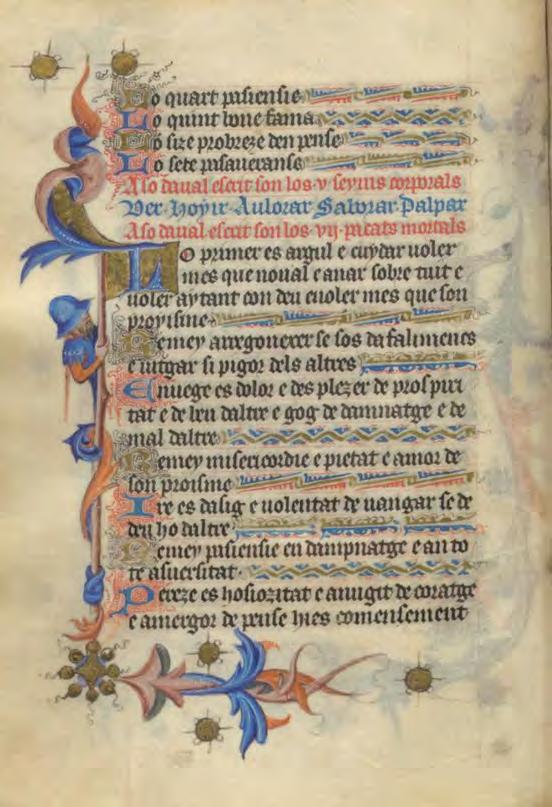 Lo quart pasiensie
Lo quint bone fama
Lo size probreze den pense
Lo sete pasaueranse
Aso daual escrit son los v seyns corporals
Ver Hoyir Aulorar Saborar Palpar
Aso daual escrit son los vij pacats mortals
Lo primer es argul e cuydar uoler
mes que no ual e anar sobre tuit e
uoler aytant con deu e uoler mes que son
proyisme
Remey arregonexer se sos defalimenes
e iutgar si pigor dels altres
Enuege es dolor e desplezer de prospiri
tat e de leu daltre e gog de damnatge e de
mal daltre
Remey misericordie e pietat e amor de
son proisme
Ire es dasig e uolentat de uangar se de
deu ho daltre
Remey pasiensie en dampnatge e an to
te asuersitat
Pereze es hosiozitat e auugit de coratge
e amergor de pense hies comensement